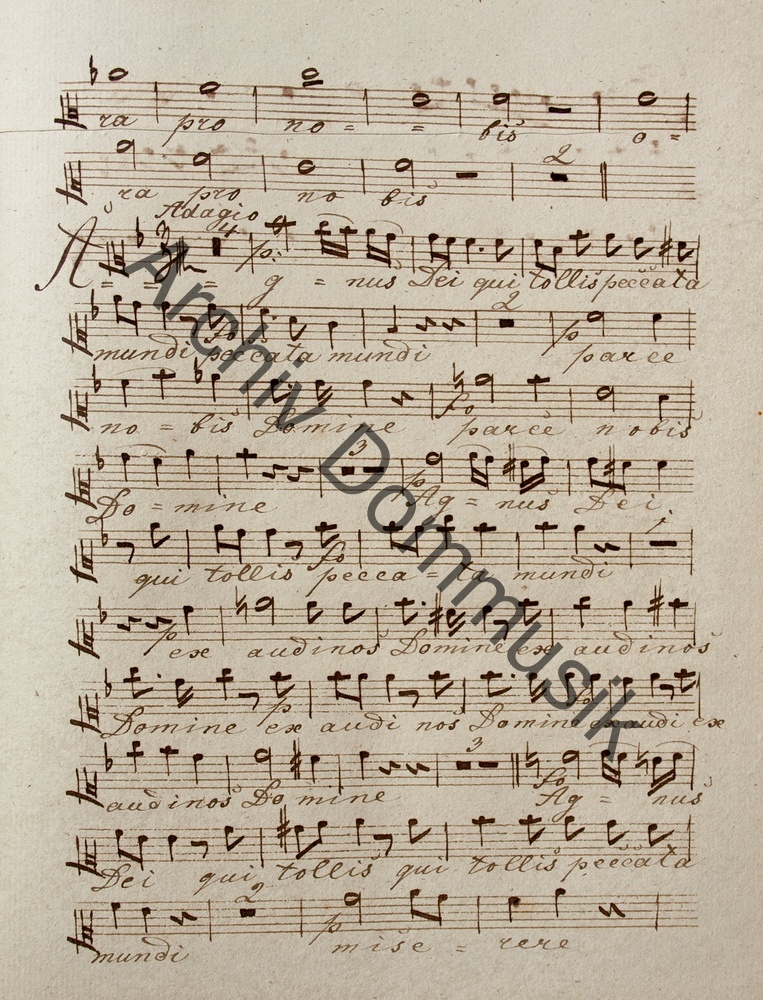 ra pro no = = bis o =
2
ra pro no bis
Adagio
4 p:
A = = = g = nus Dei qui tollis peccata
2 p
mundi peccata mundi parce
fo
no = bis Domine parce nobis
3 p
Do = mine Ag = nus Dei
fo 1.
qui tollis pecca = ta mundi
p
ex audi nos Domine ex audi nos
p fo
Domine ex audi nos Domine exaudi ex
3 fo
audi nos Do mine Ag = nus
Dei qui tollis qui tollis peccata
2 p
mundi mise = rere
Archiv Dommusik